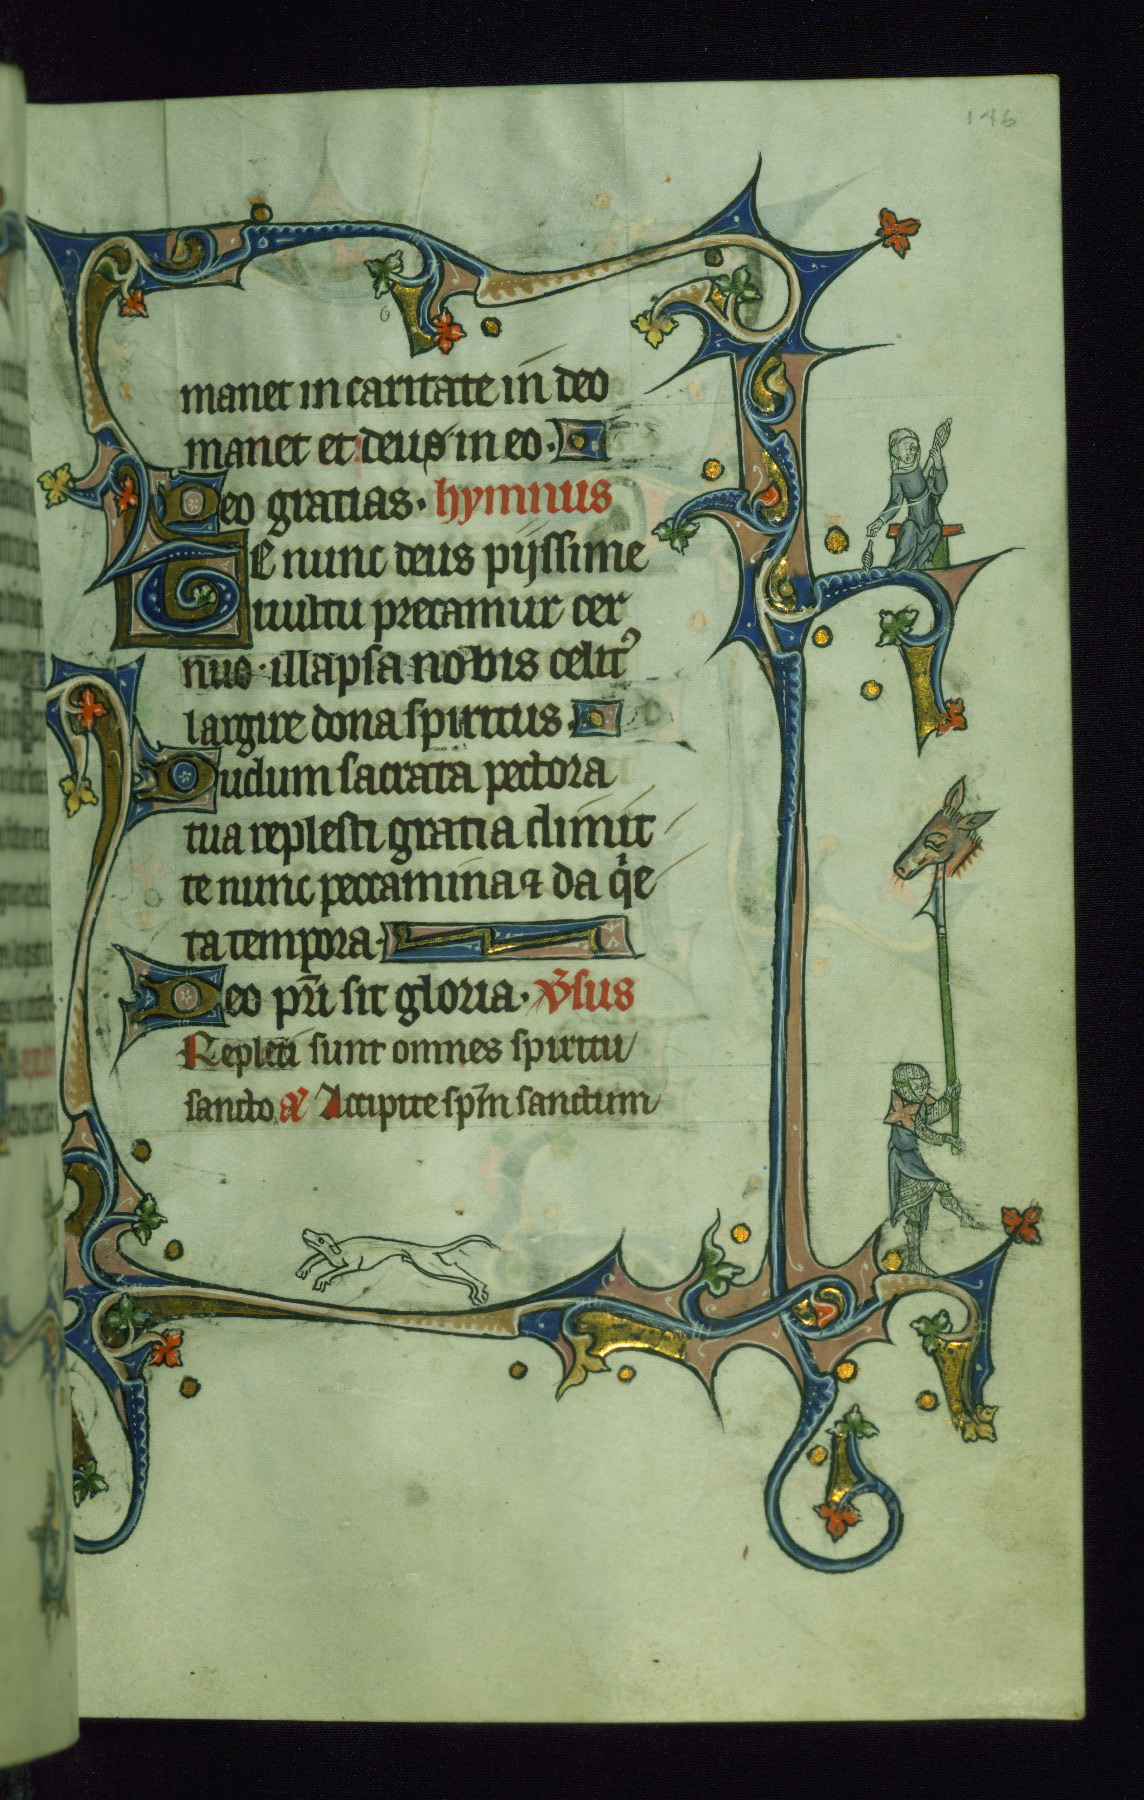 146
6
manet in caritate in deo
manet et deus in eo.
Deo gratias. hymnus
Te nunc deus pijssime
vultu precamur cer
nuo. illapsa nobis celit9
largire dona spiritus.
Dudum sacrata pectora
tua replesti gratia dimit
te nunc peccamina & da qie
ta tempora.
Deo pri sit gloria. Vsus
Repleti sunt omnes spiritu
sancto a Accipite spm sanctum